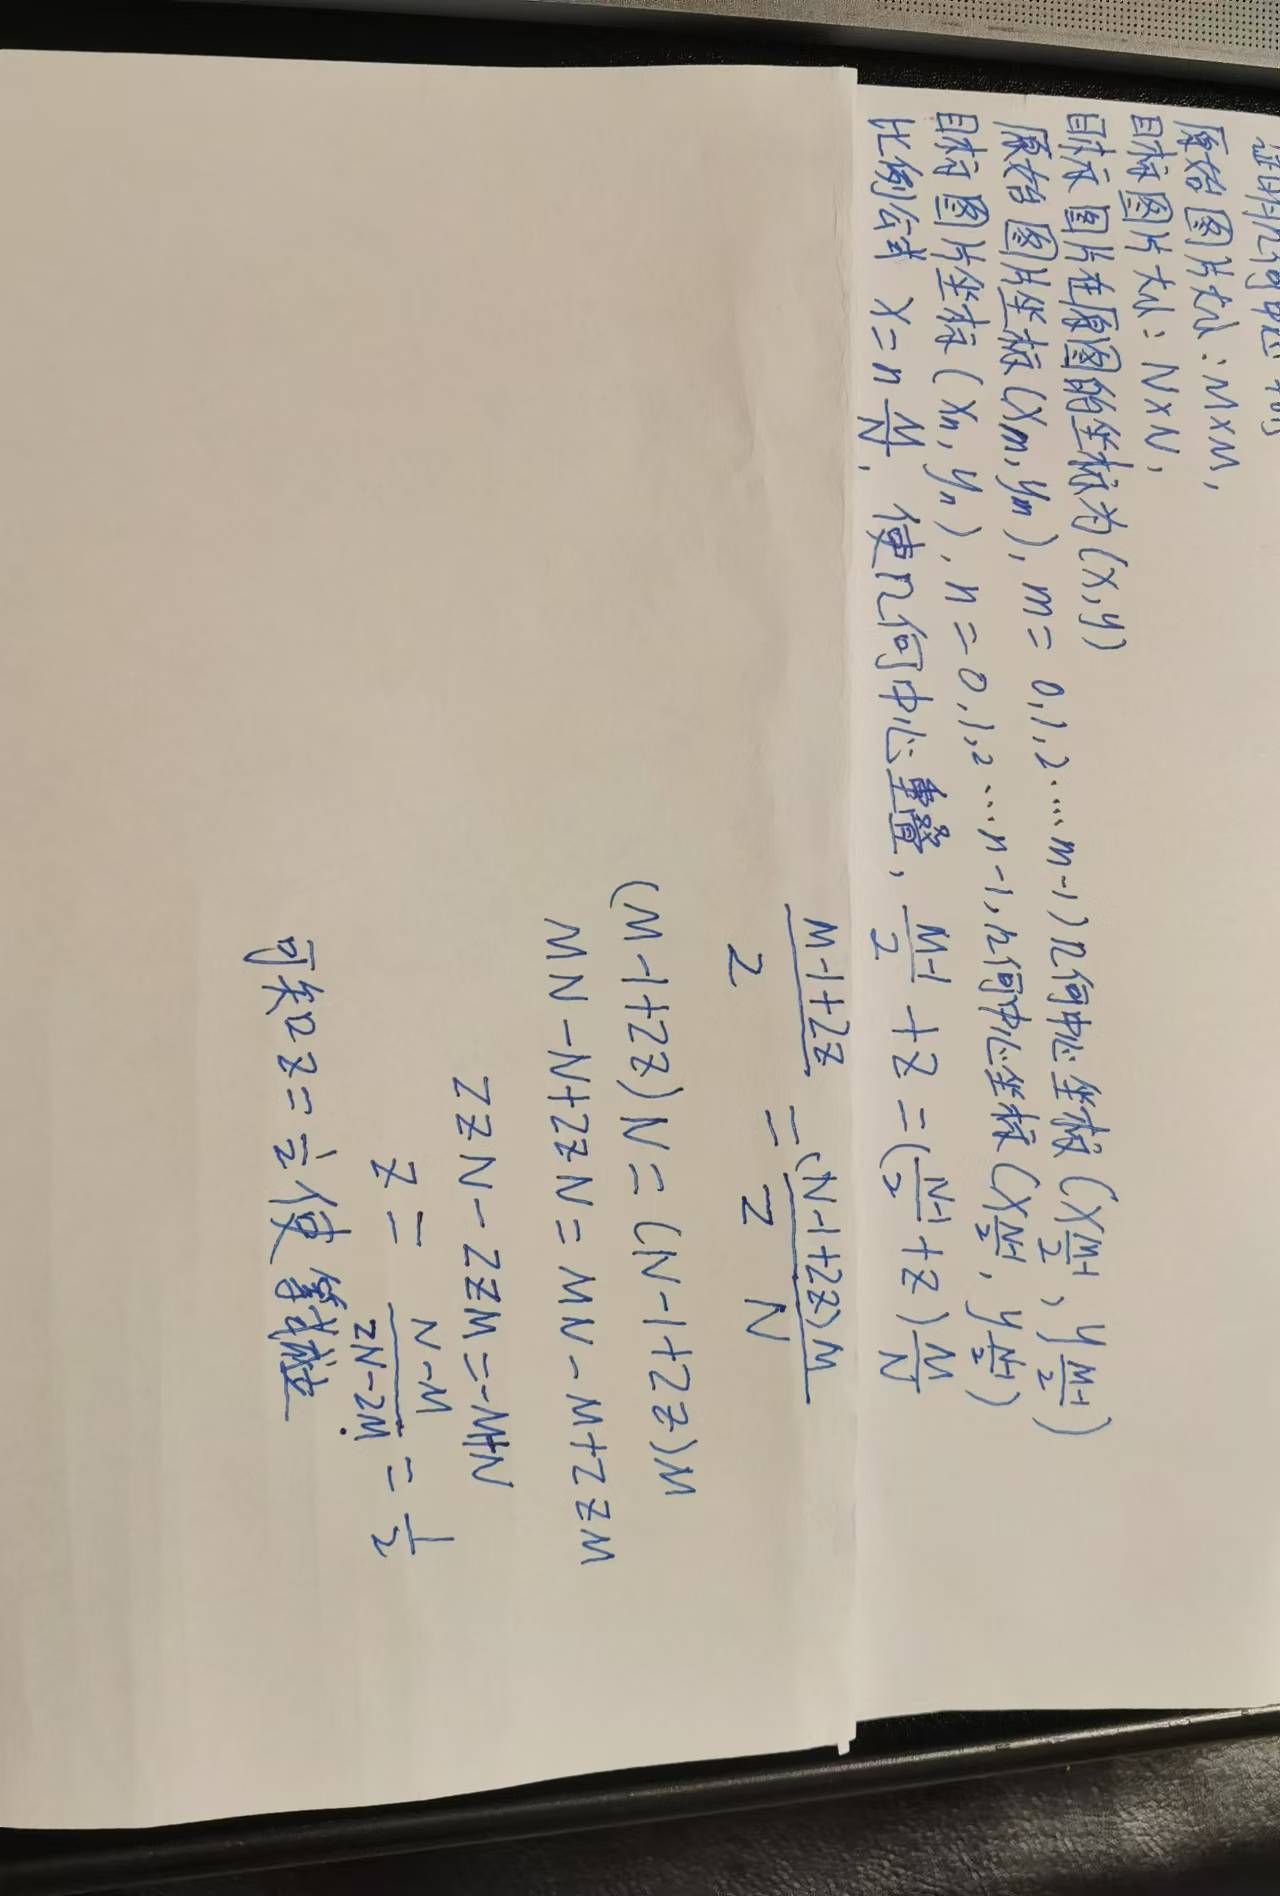 原始图片大小:M×M,
目标图片大小:N×N,
目标图片在原图的坐标为(x,y)
原始图片坐标(xm,ym),m=0,1,2....m-1)几何中心坐标(x_{\frac{M-1}{2}},y_{\frac{M-1}{2}})
目标图片坐标(xn,yn),n=0,1,2...n-1,几何中心坐标(x_{\frac{N-1}{2}},y_{\frac{N-1}{2}})
比例公式 x=n\frac{M}{N},使几何中心重叠,\frac{M-1}{2}+z=(\frac{N-1}{2}+z)\frac{M}{N}
\frac{M-1+2z}{2}=\frac{(N-1+2z)M}{2N}
(M-1+2z)N=(N-1+2z)M
MN-N+2zN=MN-M+2zM
2zN-2zM=-M+N
z=\frac{N-M}{2N-2M}=\frac{1}{2}
可知z=\frac{1}{2}使等式成立